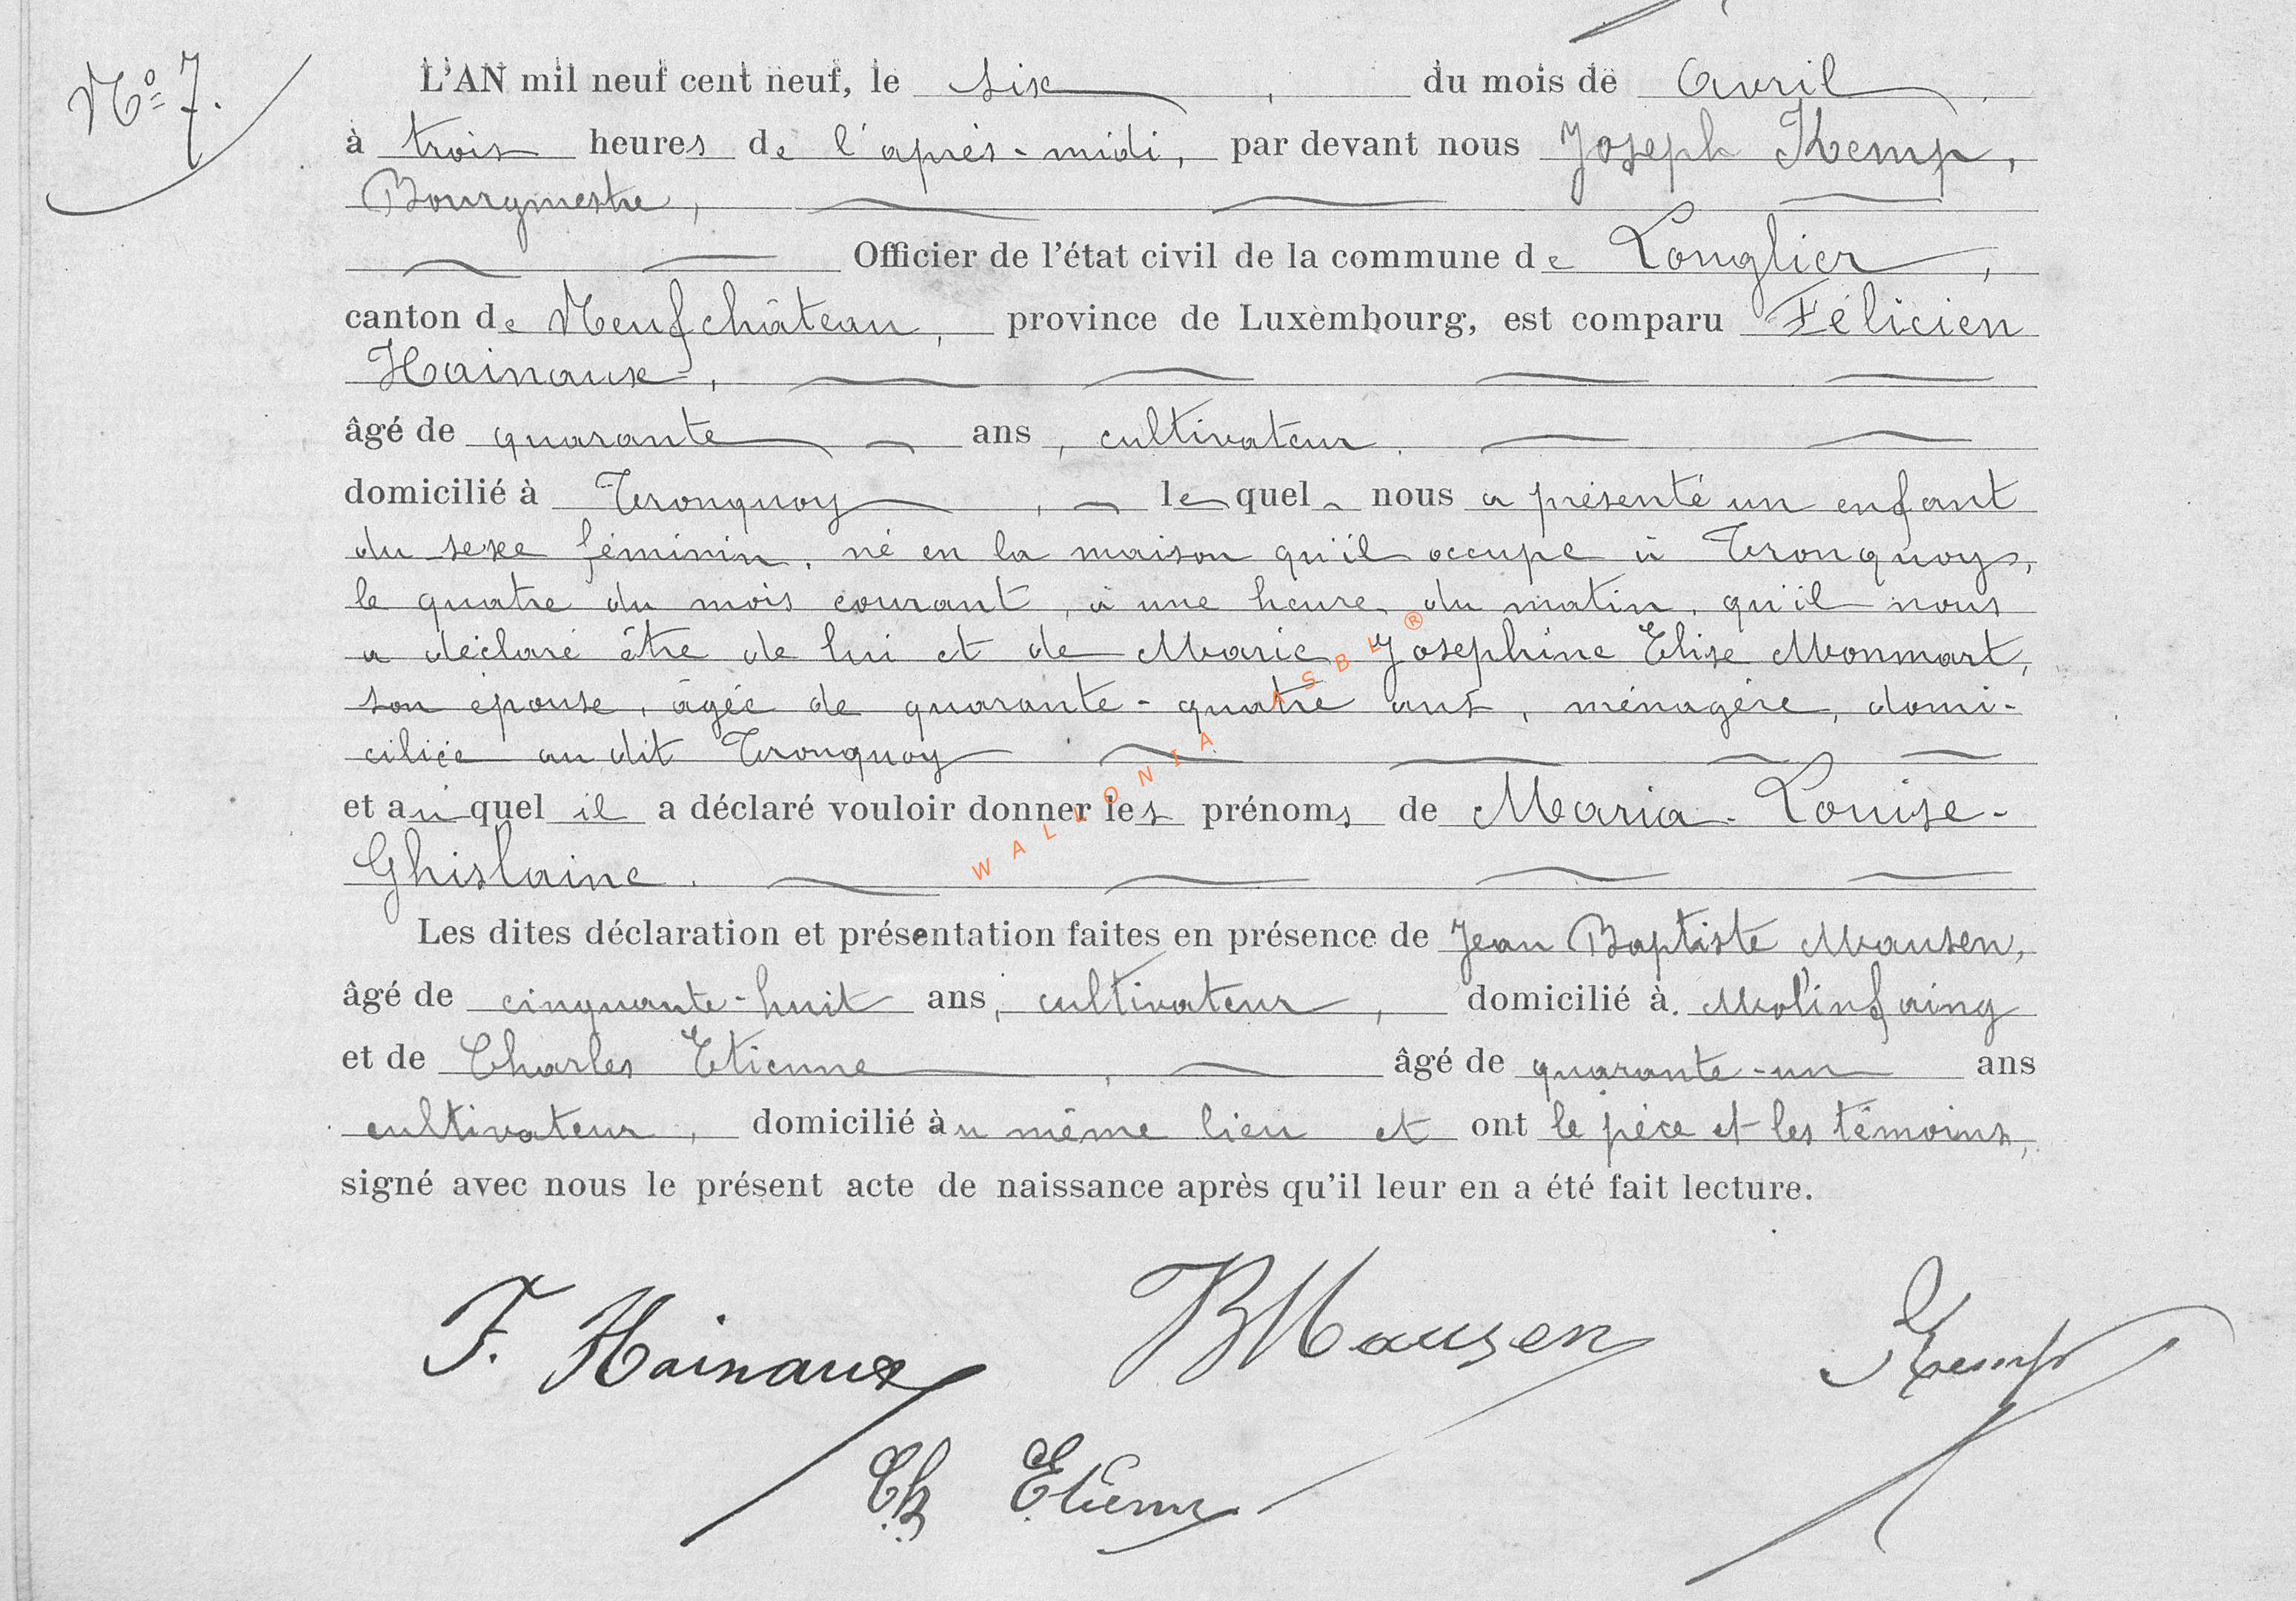 Nº 7.
L'AN mil neuf cent neuf, le six, du mois de Avril,
à trois heures de l'après-midi, par devant nous Joseph Kemp,
Bourgmestre,
Officier de l'état civil de la commune de Longlier,
canton de Neufchâteau, province de Luxembourg, est comparu Félicien
Hainaux,
âgé de quarante ans, cultivateur.
domicilié à Tronquoy, lequel nous a présenté un enfant
du sexe féminin, né en la maison qu'il occupe à Tronquoy,
le quatre du mois courant, à une heure du matin, qu'il nous
a déclaré être de lui et de Marie Josephine Elise Monmart,
son épouse, âgée de quarante-quatre ans, ménagère, domi-
ciliée au dit Tronquoy
et auquel il a déclaré vouloir donner les prénoms de Maria-Louise-
Ghislaine.
Les dites déclaration et présentation faites en présence de Jean Baptiste Mausen,
âgé de cinquante-huit ans, cultivateur, domicilié à Molinfaing
et de Charles Etienne, âgé de quarante-un ans
cultivateur, domicilié au même lieu et ont le père et les témoins,
signé avec nous le présent acte de naissance après qu'il leur en a été fait lecture.
F. Hainaux BMausen Kemp
Ch Etienne
WALLONIA ASBL ®